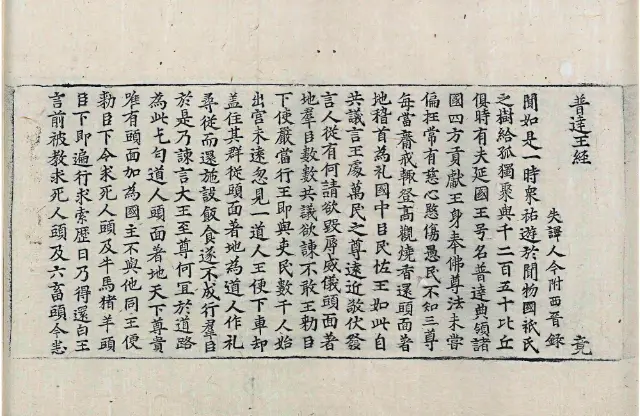 普達王經
失譯人今附西晉錄 竟
聞如是一時衆祐遊於聞物國祇氏
之樹給孤獨聚與千二百五十比丘
俱時有夫延國王号名普達典領諸
國四方貢獻王身奉佛尊法未嘗
偏枉常有慈心愍傷愚民不知三尊
每當齋戒輙登高觀燒香還頭面著
地稽首為礼國中臣民恠王如此自
共議言王處萬民之尊遠近敬伏發
言人從有何請欲毀辱威儀頭面著
地羣臣數數共議欲諫不敢王勑臣
下使嚴當行王即與吏民數千人始
出宮未遠忽見一道人王便下車却
盖住其群從頭面著地為道人作礼
尋從而還施設飯食遂不成行羣臣
於是乃諫言大王至尊何宜於道路
為此乞匃道人頭面著地天下尊貴
唯有頭面加為國主不與他同王便
勑臣下令求死人頭及牛馬猪羊頭
臣下即遍行求索歷日乃得還白王
言前被教求死人頭及六畜頭今悉